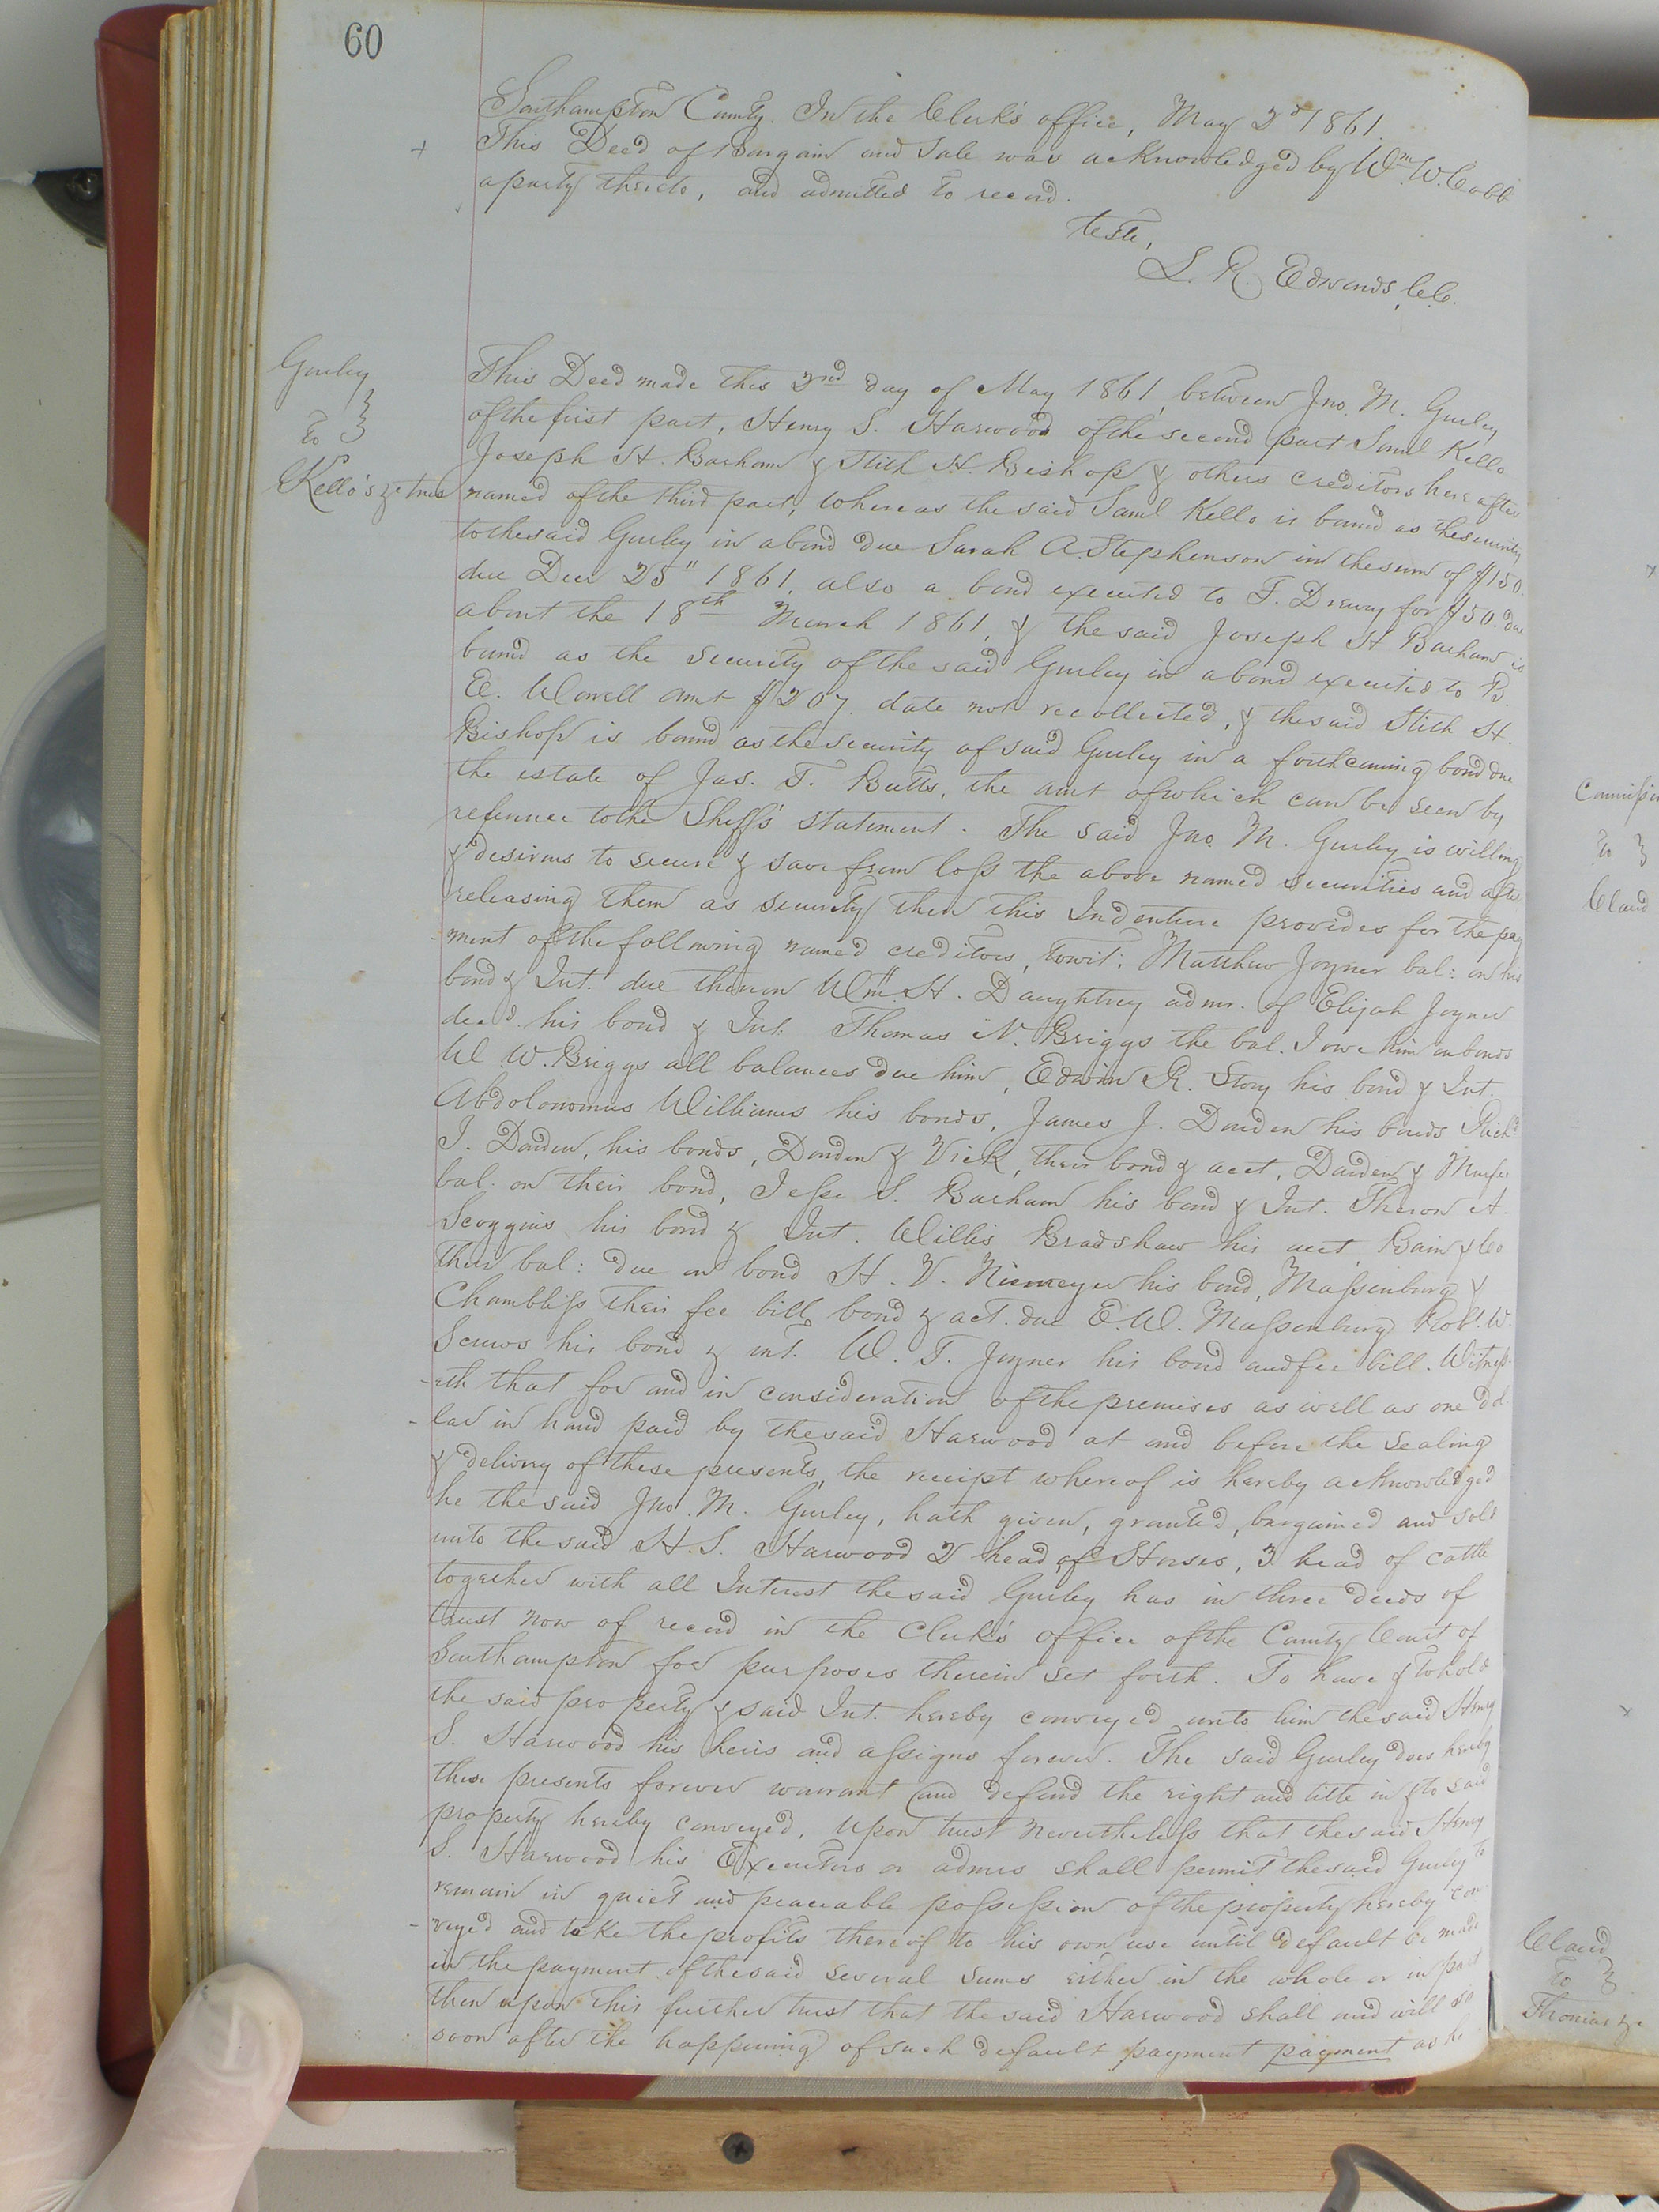 60
Southampton County. In the Clerk's office, May 2d 1861.
This Deed of Bargain and Sale was acknowledged by Wm. W. Cobb
a party thereto, and admitted to record.
Teste,
L. R. Edwards, C.C.
Gurley
to }
Kello's &c trus
This Deed made this 2nd day of May 1861, between Jno. M. Gurley
of the first part, Henry S. Harwood of the second part Saml Kello
Joseph H. Barham & Stith H. Bishop & others creditors here after
named of the third part, whereas the said Saml Kello is bound as the security
to the said Gurley in a bond due Sarah A. Stephenson in the sum of $150.
due Decr 25" 1861, also a bond executed to F. Drewry for $50. due
about the 18th March 1861, & the said Joseph H Barham is
bound as the security of the said Gurley in a bond executed to B.
E. Worrell amt $207. date not recollected, & the said Stith H.
Bishop is bound as the security of said Gurley in a forthcoming bond due
the estate of Jas. T. Butts, the amt of which can be seen by
reference to the Sheffs' statement. The said Jno. M. Gurley is willing
& desirous to secure & save from loss the above named securities and after
releasing them as security then this Indenture provides for the pay
-ment of the following named creditors, towit: Matthew Joyner bal: on his
bond & Int. due thereon Wm. H. Daughtrey admr. of Elijah Joyner
decd. his bond & Int. Thomas N. Briggs the bal. I owe him on bonds
W W. Briggs all balances due him, Edwin R. Story his bond & Int.
Abdolonomus Williams his bonds, James J. Darden his bonds Richd
J. Darden, his bonds, Darden & Vick, their bond & acct, Darden & Murfee
bal. on their bond, Jesse S. Barham his bond & Int. Theron A.
Scoggins his bond & Int. Willis Bradshaw his acct Bain & Co
their bal: due on bond H. V. Niemeyer his bond, Massenburg &
Chambliss their fee bill, bond & act. due E. W. Massenburg Robt. W.
Screws his bond & int. W. T. Joyner his bond and fee bill. Witness-
-eth that for and in consideration of the premises as well as one dol
-lar in hand paid by the said Harwood at and before the sealing
& delivery of these presents, the receipt whereof is hereby acknowledged
he the said Jno. M. Gurley, hath given, granted, bargained and sold
unto the said H. S. Harwood 2 head of Horses, 3 head of cattle
together with all Interest the said Gurley has in three deeds of
trust now of record in the Clerk's office of the County Court of
Southampton for purposes therein set forth. To have & to hold
the said property & said Int. hereby conveyed unto him the said Henry
S. Harwood his heirs and assigns forever. The said Gurley does hereby
these presents forever warrant and defend the right and title in & to said
property hereby conveyed, upon trust nevertheless that the said Henry
S. Harwood his Executors or admrs shall permit the said Gurley to
remain in quiet and peaceable possession of the property hereby con
-veyed and take the profits thereof to his own use until default be made
in the payment of the said several sums either in the whole or in part
then upon this further trust that the said Harwood shall and will so
soon after the happening of such default payment payment as he
to }
Claud
Claud
to }
Thomas &c